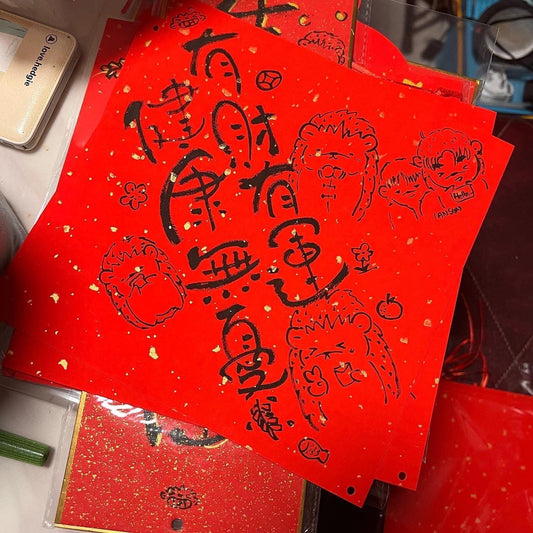 有財有運
健康無憂
love.hedgie
Hello